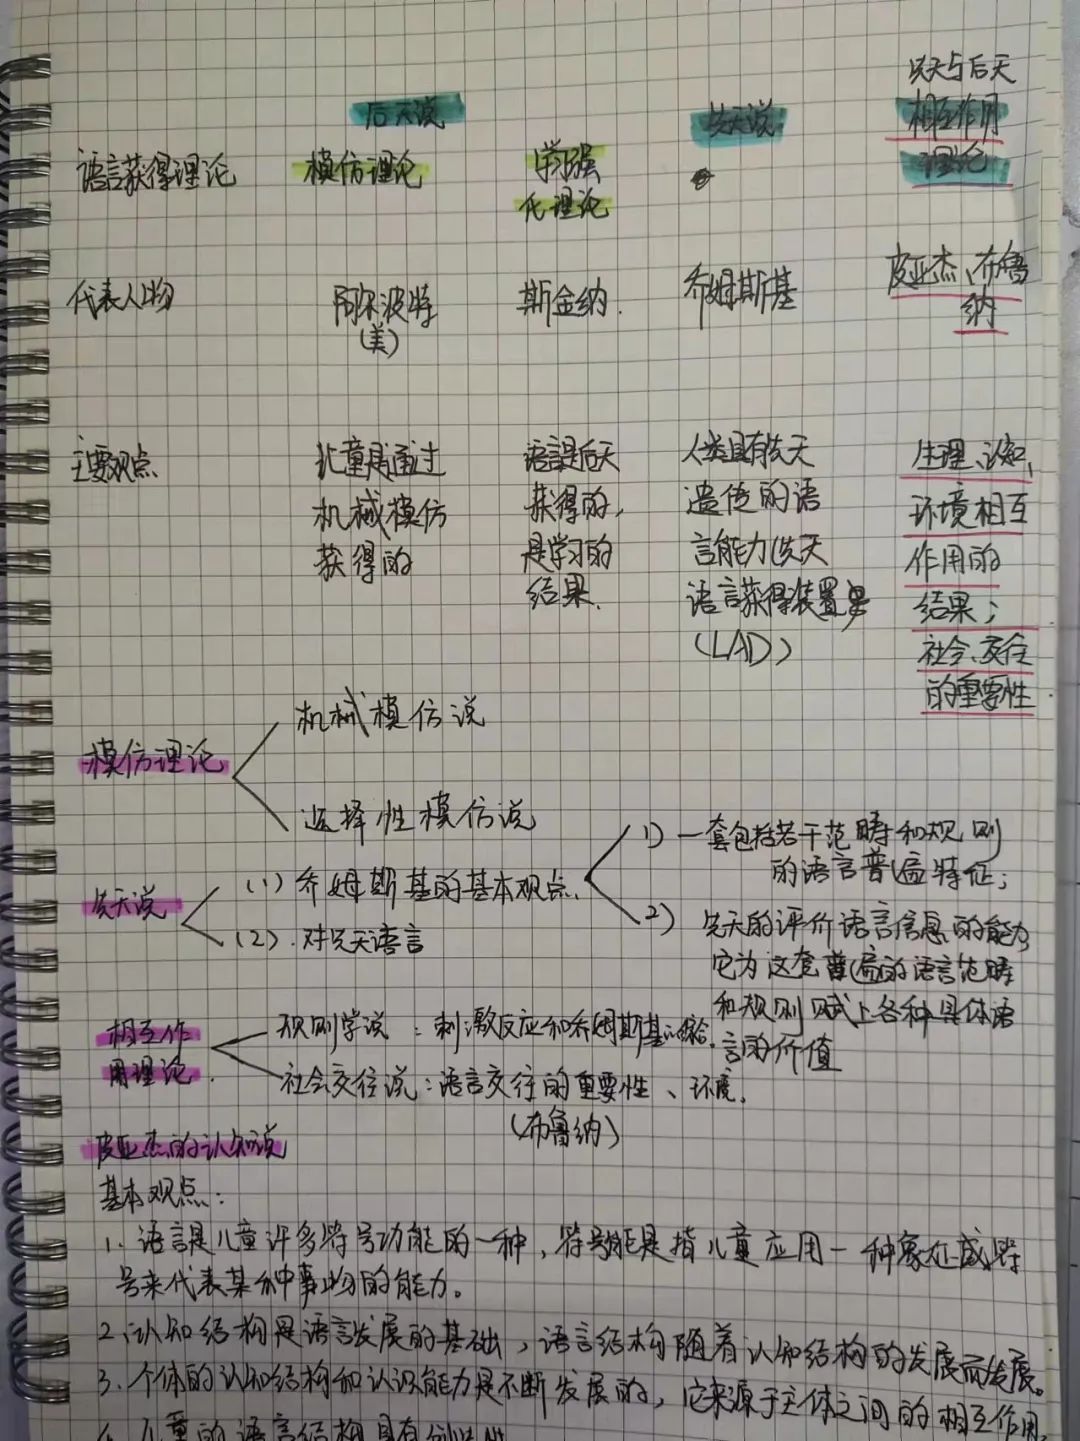 先天与后天
后天说 先天说 相互作用
语言获得理论 模仿理论 学习强 理论
化理论
代表人物 阿尔波特 斯金纳. 乔姆斯基 皮亚杰、布鲁
(美) 纳
主要观点 儿童是通过 语言是后天 人类具有先天 生理、认知、
机械模仿 获得的, 遗传的语 环境相互
获得的 是学习的 言能力(先天 作用的
结果. 语言获得装置 结果;
(LAD) 社会、交往
的重要性
机械模仿说
模仿理论
选择性模仿说
1) 一套包括若干范畴和规则
的语言普遍特征;
先天说 (1) 乔姆斯基的基本观点.
(2). 对先天语言
2) 先天的评价语言信息的能力
它为这套普遍的语言范畴
和规则赋上各种具体语
言的价值
相互作 规则学说:刺激反应和乔姆斯基
用理论. 社会交往说:语言交往的重要性、环境.
(布鲁纳)
皮亚杰的认知说
基本观点:
1. 语言是儿童许多符号功能的一种,符号功能是指儿童应用一种象征或符
号来代表某种事物的能力。
2. 认知结构是语言发展的基础,语言结构随着认知结构的发展而发展。
3. 个体的认知结构和认识能力是不断发展的,它来源于主体之间的相互作用.
4. 儿童的语言结构具有创造性